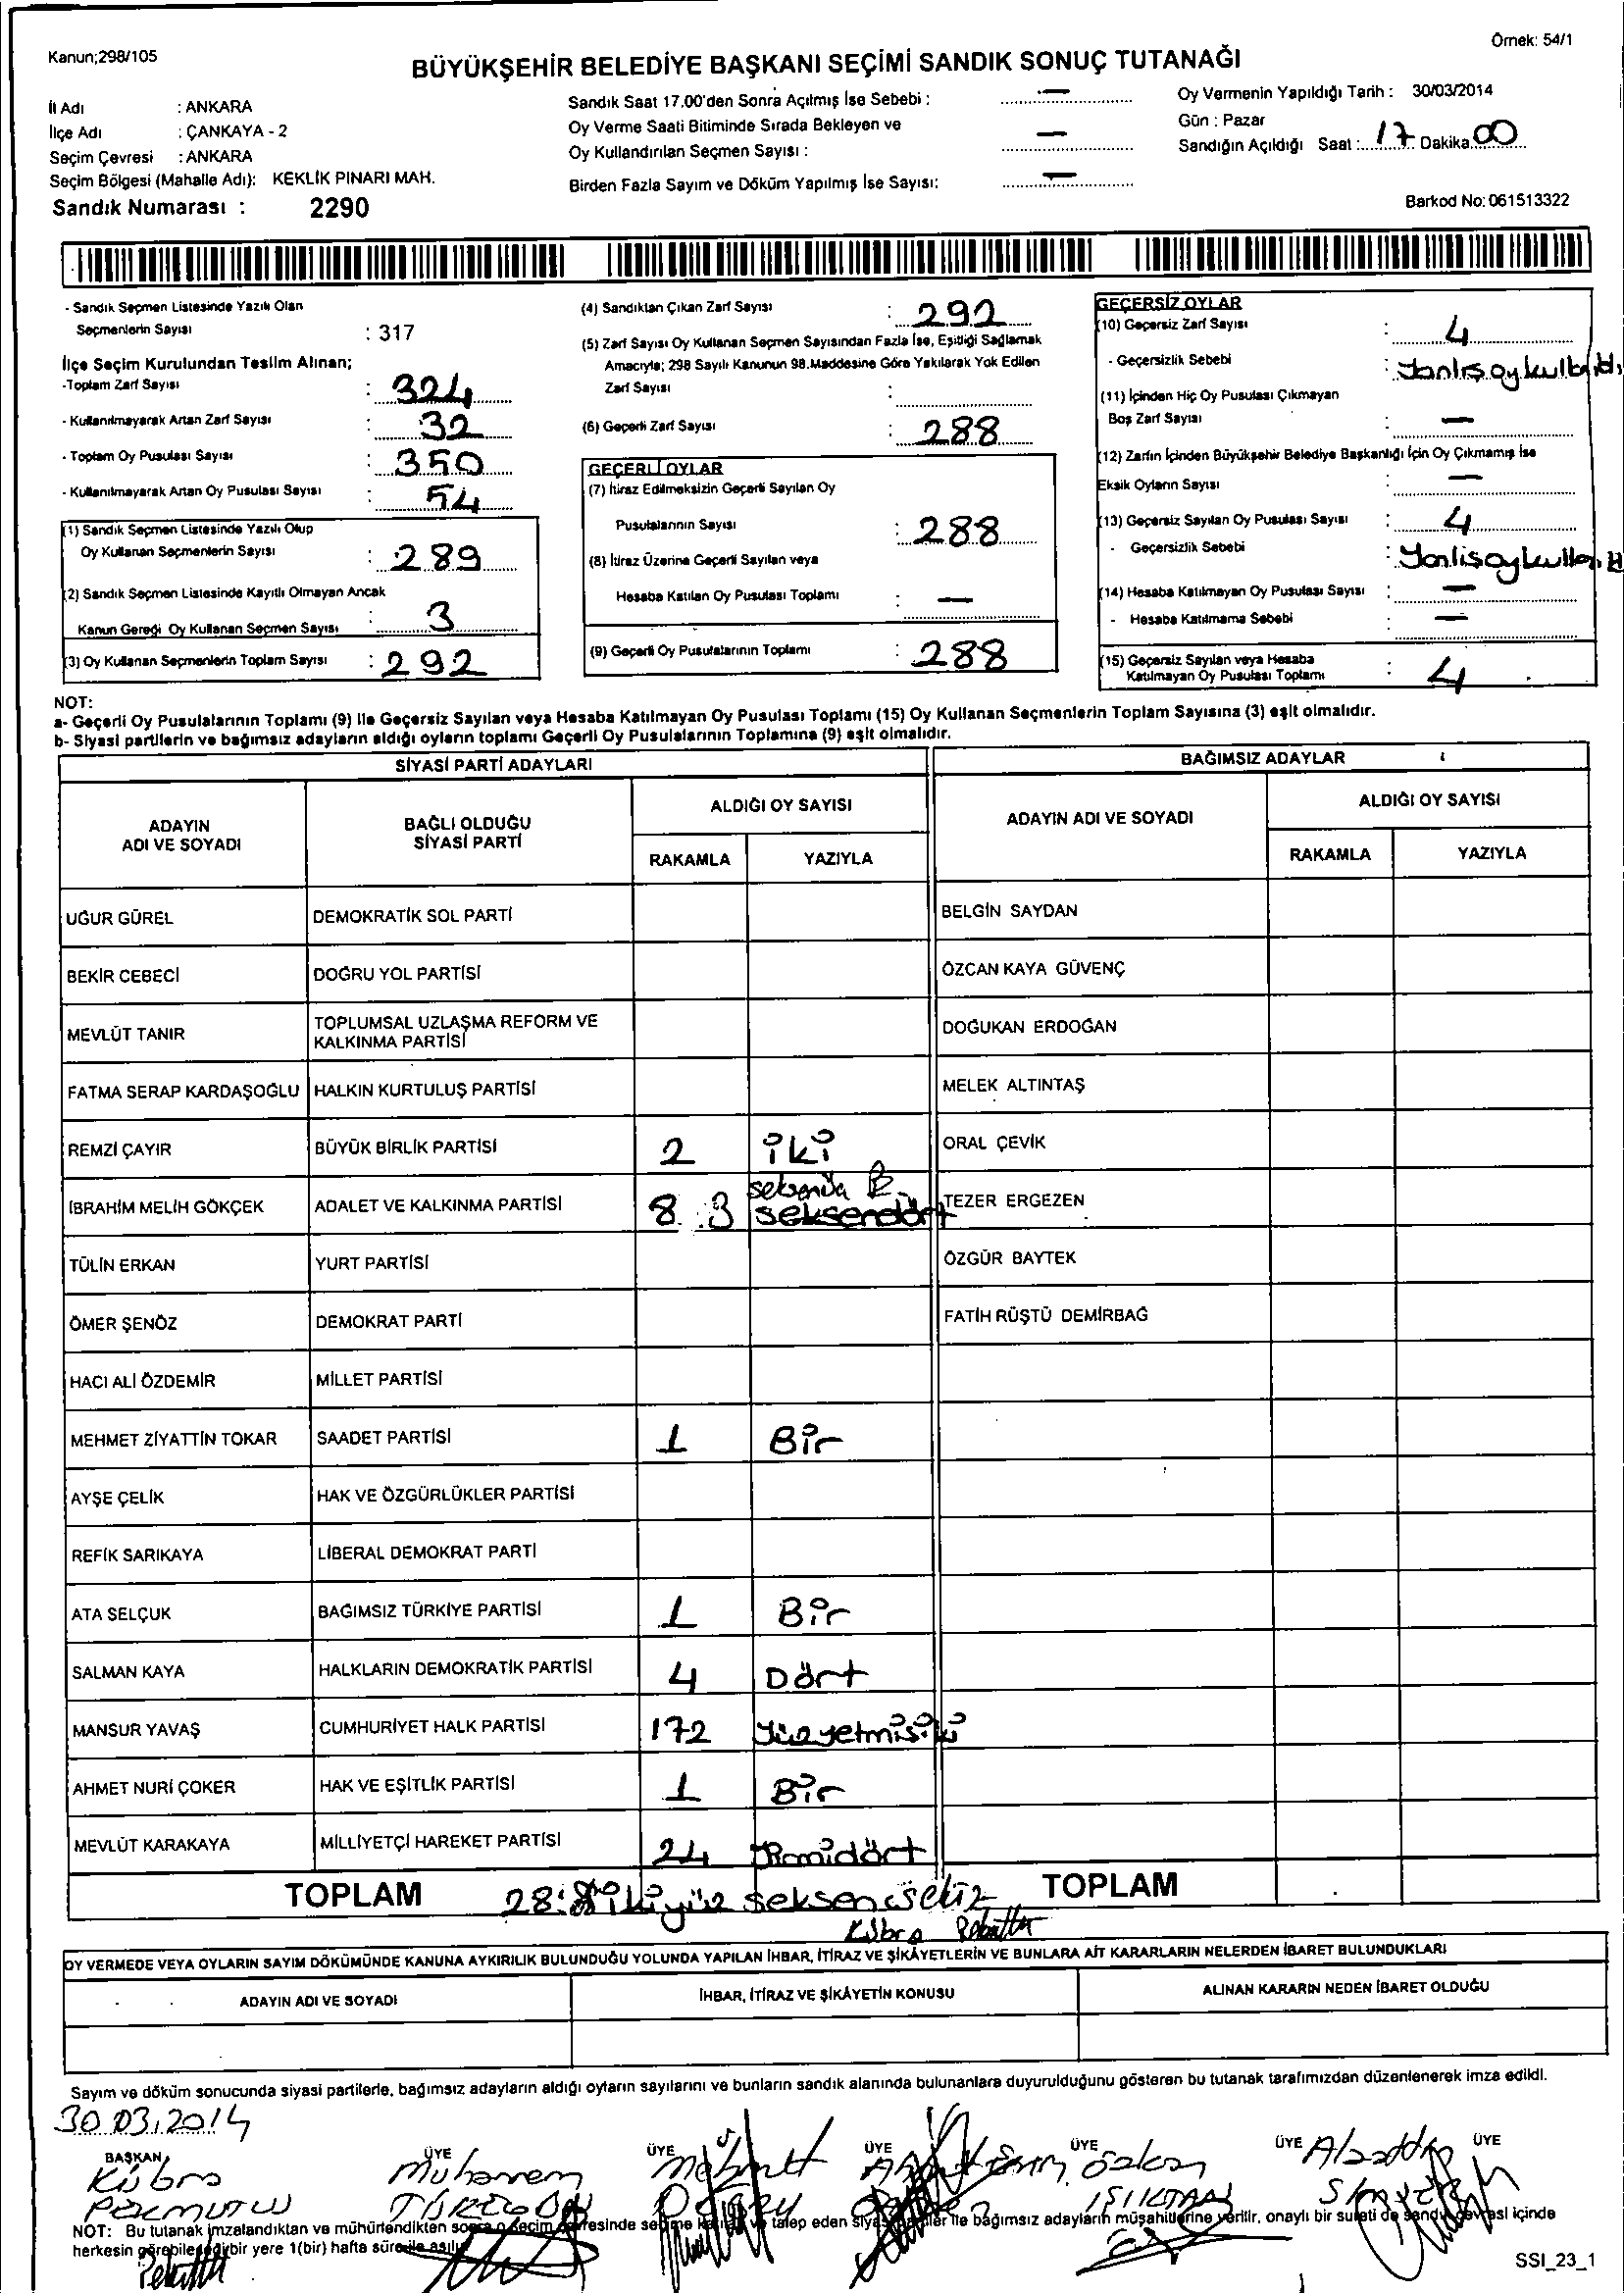 Kanun;298/105
Örnek: 54/1
BÜYÜKŞEHİR BELEDİYE BAŞKANI SEÇİMİ SANDIK SONUÇ TUTANAĞI
İl Adı : ANKARA
İlçe Adı : ÇANKAYA - 2
Seçim Çevresi : ANKARA
Seçim Bölgesi (Mahalle Adı): KEKLİK PINARI MAH.
Sandık Numarası : 2290
Sandık Saat 17.00'den Sonra Açılmış İse Sebebi : —
Oy Verme Saati Bitiminde Sırada Bekleyen ve
Oy Kullandırılan Seçmen Sayısı : —
Birden Fazla Sayım ve Döküm Yapılmış İse Sayısı: —
Oy Vermenin Yapıldığı Tarih : 30/03/2014
Gün : Pazar
Sandığın Açıldığı Saat : 17 Dakika 00
Barkod No: 061513322
- Sandık Seçmen Listesinde Yazılı Olan
Seçmenlerin Sayısı : 317
İlçe Seçim Kurulundan Teslim Alınan;
-Toplam Zarf Sayısı : 324
- Kullanılmayarak Artan Zarf Sayısı : 32
- Toplam Oy Pusulası Sayısı : 350
- Kullanılmayarak Artan Oy Pusulası Sayısı : 54
(1) Sandık Seçmen Listesinde Yazılı Olup
Oy Kullanan Seçmenlerin Sayısı : 289
(2) Sandık Seçmen Listesinde Kayıtlı Olmayan Ancak
Kanun Gereği Oy Kullanan Seçmen Sayısı : 3
(3) Oy Kullanan Seçmenlerin Toplam Sayısı : 292
(4) Sandıktan Çıkan Zarf Sayısı : 292
(5) Zarf Sayısı Oy Kullanan Seçmen Sayısından Fazla İse, Eşitliği Sağlamak
Amacıyla; 298 Sayılı Kanunun 98.Maddesine Göre Yakılarak Yok Edilen
Zarf Sayısı :
(6) Geçerli Zarf Sayısı : 288
GEÇERLİ OYLAR
(7) İtiraz Edilmeksizin Geçerli Sayılan Oy
Pusulalarının Sayısı : 288
(8) İtiraz Üzerine Geçerli Sayılan veya
Hesaba Katılan Oy Pusulası Toplamı : —
(9) Geçerli Oy Pusulalarının Toplamı : 288
GEÇERSİZ OYLAR
(10) Geçersiz Zarf Sayısı : 4
- Geçersizlik Sebebi :
(11) İçinden Hiç Oy Pusulası Çıkmayan
Boş Zarf Sayısı : —
(12) Zarfın İçinden Büyükşehir Belediye Başkanlığı İçin Oy Çıkmamış İse
Eksik Oyların Sayısı : —
(13) Geçersiz Sayılan Oy Pusulası Sayısı : 4
- Geçersizlik Sebebi :
(14) Hesaba Katılmayan Oy Pusulası Sayısı : —
- Hesaba Katılmama Sebebi : —
(15) Geçersiz Sayılan veya Hesaba
Katılmayan Oy Pusulası Toplamı : 4
NOT:
a- Geçerli Oy Pusulalarının Toplamı (9) ile Geçersiz Sayılan veya Hesaba Katılmayan Oy Pusulası Toplamı (15) Oy Kullanan Seçmenlerin Toplam Sayısına (3) eşit olmalıdır.
b- Siyasi partilerin ve bağımsız adayların aldığı oyların toplamı Geçerli Oy Pusulalarının Toplamına (9) eşit olmalıdır.
SİYASİ PARTİ ADAYLARI BAĞIMSIZ ADAYLAR
ADAYIN ADI VE SOYADI BAĞLI OLDUĞU SİYASİ PARTİ ALDIĞI OY SAYISI ADAYIN ADI VE SOYADI ALDIĞI OY SAYISI
RAKAMLA YAZIYLA RAKAMLA YAZIYLA
UĞUR GÜREL DEMOKRATİK SOL PARTİ BELGİN SAYDAN
BEKİR CEBECİ DOĞRU YOL PARTİSİ ÖZCAN KAYA GÜVENÇ
MEVLÜT TANIR TOPLUMSAL UZLAŞMA REFORM VE KALKINMA PARTİSİ DOĞUKAN ERDOĞAN
FATMA SERAP KARDAŞOĞLU HALKIN KURTULUŞ PARTİSİ MELEK ALTINTAŞ
REMZİ ÇAYIR BÜYÜK BİRLİK PARTİSİ 2 iki ORAL ÇEVİK
İBRAHİM MELİH GÖKÇEK ADALET VE KALKINMA PARTİSİ 8 3 seksendört TEZER ERGEZEN
TÜLİN ERKAN YURT PARTİSİ ÖZGÜR BAYTEK
ÖMER ŞENÖZ DEMOKRAT PARTİ FATİH RÜŞTÜ DEMİRBAĞ
HACI ALİ ÖZDEMİR MİLLET PARTİSİ
MEHMET ZİYATTİN TOKAR SAADET PARTİSİ 1 Bir
AYŞE ÇELİK HAK VE ÖZGÜRLÜKLER PARTİSİ
REFİK SARIKAYA LİBERAL DEMOKRAT PARTİ
ATA SELÇUK BAĞIMSIZ TÜRKİYE PARTİSİ 1 Bir
SALMAN KAYA HALKLARIN DEMOKRATİK PARTİSİ 4 Dört
MANSUR YAVAŞ CUMHURİYET HALK PARTİSİ 172 Yüzyetmisiki
AHMET NURİ ÇOKER HAK VE EŞİTLİK PARTİSİ 1 Bir
MEVLÜT KARAKAYA MİLLİYETÇİ HAREKET PARTİSİ 24 Yirmidört
TOPLAM 288 ikiyüz seksen sekiz TOPLAM
Kübra
OY VERMEDE VEYA OYLARIN SAYIM DÖKÜMÜNDE KANUNA AYKIRILIK BULUNDUĞU YOLUNDA YAPILAN İHBAR, İTİRAZ VE ŞİKÂYETLERİN VE BUNLARA AİT KARARLARIN NELERDEN İBARET BULUNDUKLARI
ADAYIN ADI VE SOYADI İHBAR, İTİRAZ VE ŞİKÂYETİN KONUSU ALINAN KARARIN NEDEN İBARET OLDUĞU
Sayım ve döküm sonucunda siyasi partilerle, bağımsız adayların aldığı oyların sayılarını ve bunların sandık alanında bulunanlara duyurulduğunu gösteren bu tutanak tarafımızdan düzenlenerek imza edildi.
30.03.2014
BAŞKAN ÜYE ÜYE ÜYE ÜYE ÜYE ÜYE
Kübra Muharrem Mehmet Özkan
IŞIKTAN
NOT: Bu tutanak imzalandıktan ve mühürlendikten sonra seçim çevresinde seçime katılan ve talep eden siyasi partiler ile bağımsız adayların müşahitlerine verilir, onaylı bir sureti de sandık çevresi içinde
herkesin görebileceği bir yere 1(bir) hafta süre ile asılır.
SSI_23_1